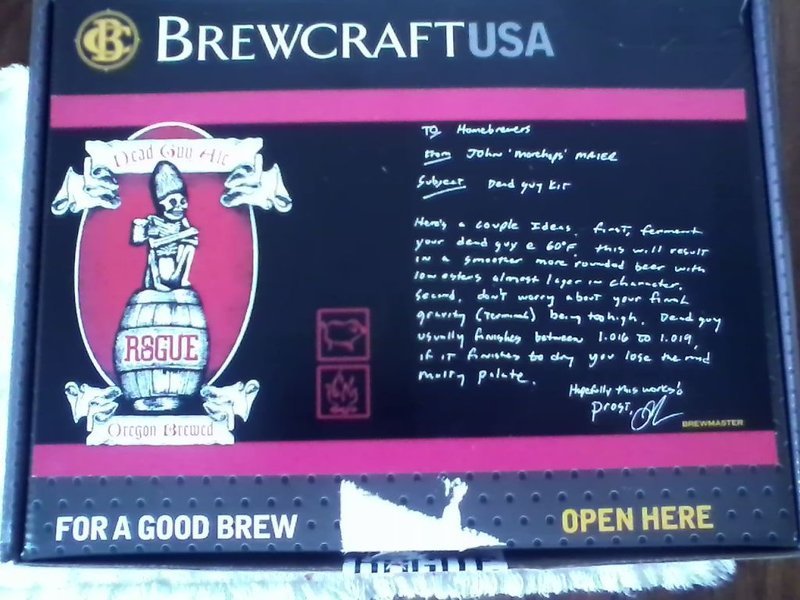 BREWCRAFTUSA
Dead Guy Ale
ROGUE
Oregon Brewed
TO Homebrewers
From John "more hops" MAIER
Subject Dead guy Kit
Here's a couple Ideas. first, ferment
your dead guy @ 60°F. this will result
in a smoother more rounded beer with
low esters almost lager in character.
Second, don't worry about your final
gravity (terminal) being too high. Dead guy
usually finishes between 1.016 to 1.019,
if it finishes to dry you lose the mid
malty palate.
Hopefully this works!
prost,
BREWMASTER
FOR A GOOD BREW
OPEN HERE